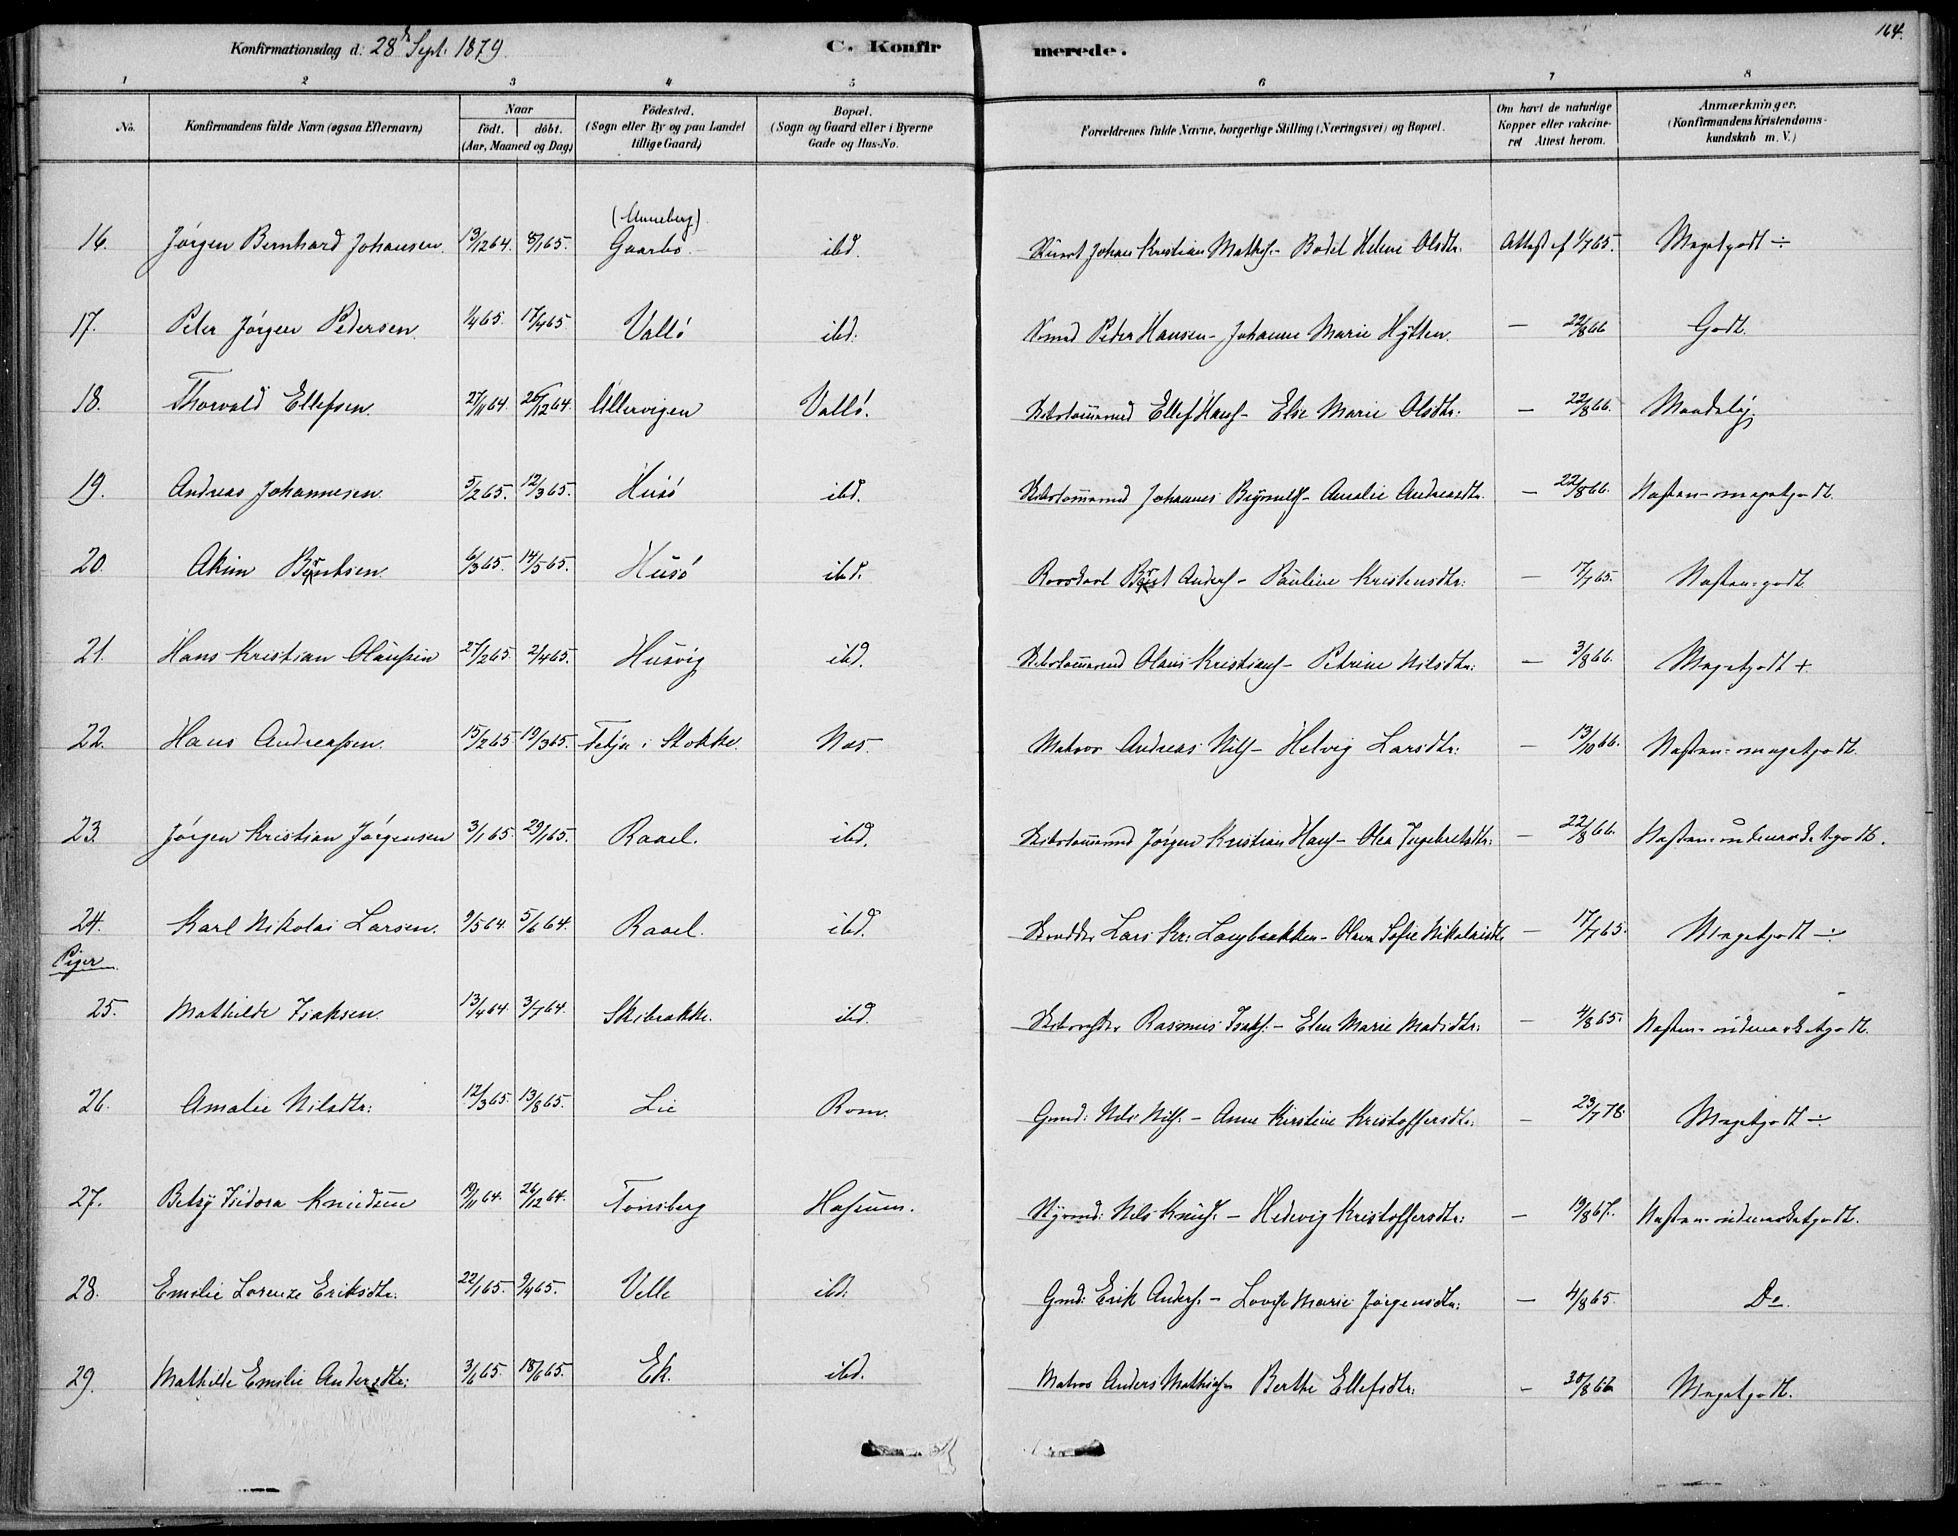 164.
Konfirmationsdag d. 28de Sept. 1879. C. Konfirmerede.
1 2 3 4 5 6 7 8
No. Konfirmandens fulde Navn (ogsaa Efternavn) Naar födt. döbt. (Aar, Maaned og Dag) Födested. (Sogn eller By og paa Landet tillige Gaard) Bopæl. (Sogn og Gaard eller i Byerne Gade og Hus-No. Forældrenes fulde Navne, borgerlige Stilling (Næringsvei) og Bopæl. Om havt de naturlige Kopper eller vakcineret Attest herom. Anmærkninger. (Konfirmandens Kristendomskundskab m. V.)
16. Jørgen Bernhard Johansen. 13/12 64. 8/1 65. (Unneberg) Gaarbo. ibd. Johan Kristian Maths. - Bodel Helene Olsdtr. Attest af 1/7 65. Megetgodt ÷
17. Peter Jørgen Pedersen. 1/4 65. 17/4 65 Vallö ibd. Peder Hansen - Johanne Marie Hytten. — 22/8 66 Godt.
18. Thorvald Ellefsen. 27/11 64 26/12 64. Ullervigen Vallö. Ellef Hans. - Else Marie Olsdtr. — 22/8 66. Maadelig.
19. Andreas Johannesen. 5/2 65. 12/3 65. Husö ibd. Johannes - Amalie Andreasdtr. — 22/8 66. Næsten-megetgodt.
20. Akim Berntsen. 6/3 65. 14/5 65. Husö ibd. Bernt Anders. - Pauline Kristensdtr. — 17/7 65. Næsten-godt.
21. Hans Kristian Olausen 27/2 65 2/4 65. Husvig ibd. Olaus Kristians. - Petrine Nilsdtr. — 3/8 66. Megetgodt +
22. Hans Andreassen. 15/2 65 19/3 65. i Stokke. Næs. Matros Andreas Nils. - Helvig Larsdtr. — 13/10 66. Næsten-megetgodt.
23. Jørgen Kristian Jørgensen 3/1 65. 29/1 65. Raael. ibd. Jørgen Kristian Hans. - Olea Ingebretsdtr. — 22/8 66. Næsten-udmærketgodt.
24. Karl Nikolai Larsen. 9/5 64. 5/6 64. Raael. ibd. Lars Kr. - Olava Sofie Nikolaisdtr. — 17/7 65. Megetgodt ÷
Piger
25. Mathilde Isaksen. 13/4 64 3/7 64. Skibrakke. ibd. Rasmus Isaks. - Elen Marie Madsdtr. — 4/8 65. Næsten-udmærketgodt.
26. Amalie Nilsdtr. 12/3 65. 13/8 65. Lie Rom. Gmd. Nils Nils. - Anne Kirstine Kristoffersdtr. — 23/7 78. Megetgodt ÷
27. Betsy Isidora Knudsen 19/11 64. 26/12 64. Tönsberg Nils Knuds. - Hedevig Kristoffersdtr. — 19/8 67. Næsten-udmærketgodt.
28. Emilie Lorenze Eriksdtr. 22/1 65. 9/4 65. Velle ibd. Gmd. Erik Anders. - Lovise Marie Jørgensdtr. — 4/8 65. Do.
29. Mathilde Emilie Andersdtr. 3/6 65. 18/6 65. Ek. ibd. Matros Anders Mathias. Berthe Ellefsdtr. - 30/8 66 Megetgodt.